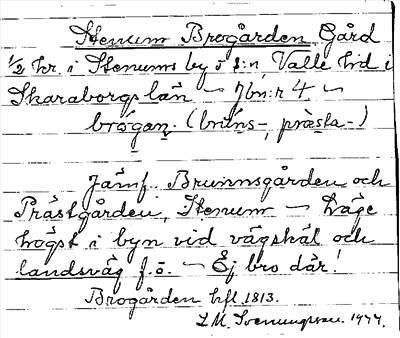 Stenum Brogården Gård
1/2 hr. i Stenums by o s:n, Valle hd i
Skaraborgs län — Jbn:r 4 —
brógan. (brúns-, præsta-)
Jämf. Brunnsgården och
Prästgården, Stenum — Läge
högst i byn vid vägskäl och
landsväg f.ö. — Ej bro där!
Brogården hfl. 1813.
L M. Svenungsson. 1944.